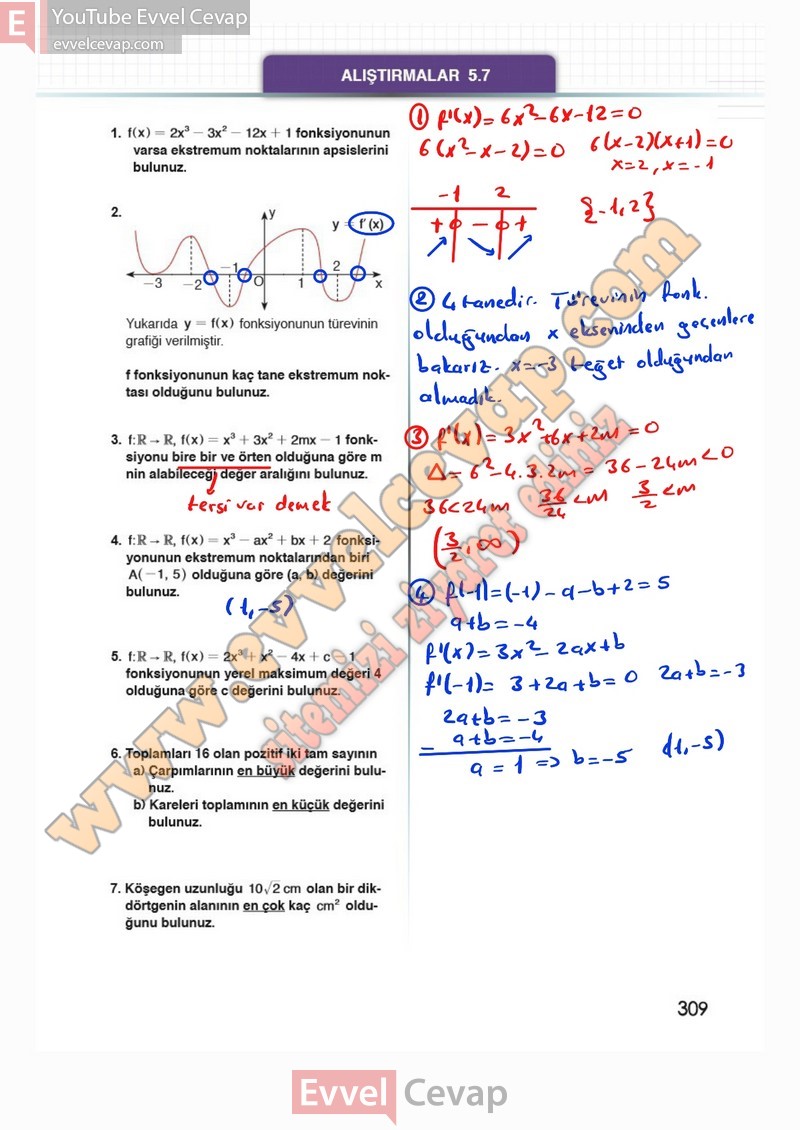 E YouTube Evvel Cevap
evvelcevap.com
ALIŞTIRMALAR 5.7
1. f(x) = 2x³ – 3x² – 12x + 1 fonksiyonunun
varsa ekstremum noktalarının apsislerini
bulunuz.
2.
y
y = f'(x)
–3 –2 –1 O 1 2 x
Yukarıda y = f(x) fonksiyonunun türevinin
grafiği verilmiştir.
f fonksiyonunun kaç tane ekstremum nok-
tası olduğunu bulunuz.
3. f:ℝ→ℝ, f(x) = x³ + 3x² + 2mx – 1 fonk-
siyonu bire bir ve örten olduğuna göre m
nin alabileceği değer aralığını bulunuz.
tersi var demek
4. f:ℝ→ℝ, f(x) = x³ – ax² + bx + 2 fonksi-
yonunun ekstremum noktalarından biri
A(–1, 5) olduğuna göre (a, b) değerini
bulunuz.
(1,-5)
5. f:ℝ→ℝ, f(x) = 2x³ + x² – 4x + c – 1
fonksiyonunun yerel maksimum değeri 4
olduğuna göre c değerini bulunuz.
6. Toplamları 16 olan pozitif iki tam sayının
a) Çarpımlarının en büyük değerini bulu-
nuz.
b) Kareleri toplamının en küçük değerini
bulunuz.
7. Köşegen uzunluğu 10√2 cm olan bir dik-
dörtgenin alanının en çok kaç cm² oldu-
ğunu bulunuz.
① f'(x)=6x²-6x-12=0
6(x²-x-2)=0 6(x-2)(x+1)=0
x=2, x=-1
-1 2
+ 0 - 0 + {-1,2}
② 4 tanedir. Türevinin fonk.
olduğundan x ekseninden geçenlere
bakarız. x=-3 teğet olduğundan
almadık.
③ f'(x)=3x²+6x+2m=0
Δ=6²-4.3.2m=36-24m<0
36<24m 36/24<m 3/2<m
(3/2,∞)
④ f(-1)=(-1)-a-b+2=5
a+b=-4
f'(x)=3x²-2ax+b
f'(-1)=3+2a+b=0 2a+b=-3
2a+b=-3
- a+b=-4
a=1 => b=-5 (1,-5)
www.evvelcevap.com
sitemizi ziyaret ediniz
309
Evvel Cevap